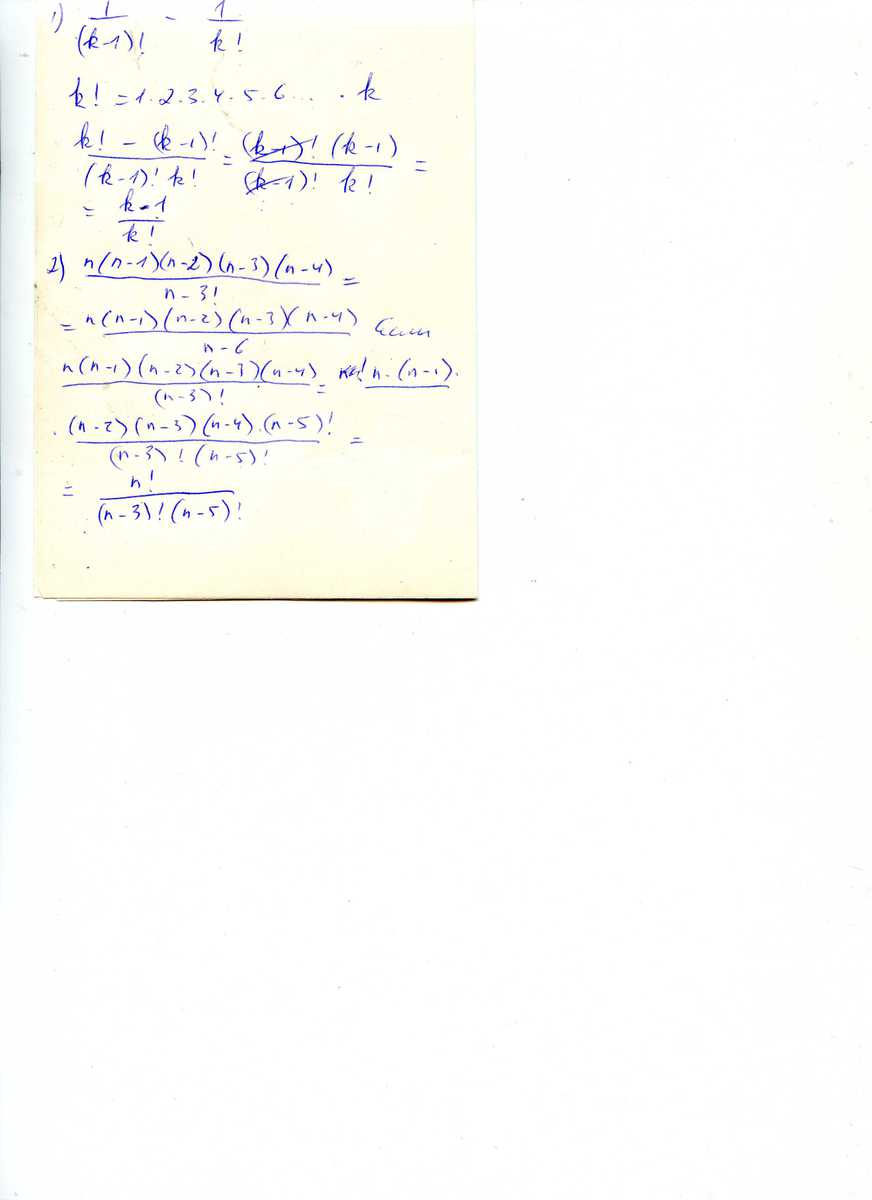 1) 1/(k-1)! - 1/k!
k! = 1·2·3·4·5·6... · k
(k! - (k-1)!)/((k-1)! k!) = ((k-1)! (k-1))/((k-1)! k!) =
= (k-1)/k!
2) (n(n-1)(n-2)(n-3)(n-4))/(n-3!) =
= (n(n-1)(n-2)(n-3)(n-4))/(n-6) Если
(n(n-1)(n-2)(n-3)(n-4))/((n-3)!) = n·(n-1)·
·((n-2)(n-3)(n-4)·(n-5)!)/((n-3)!(n-5)!) =
= n!/((n-3)!(n-5)!)